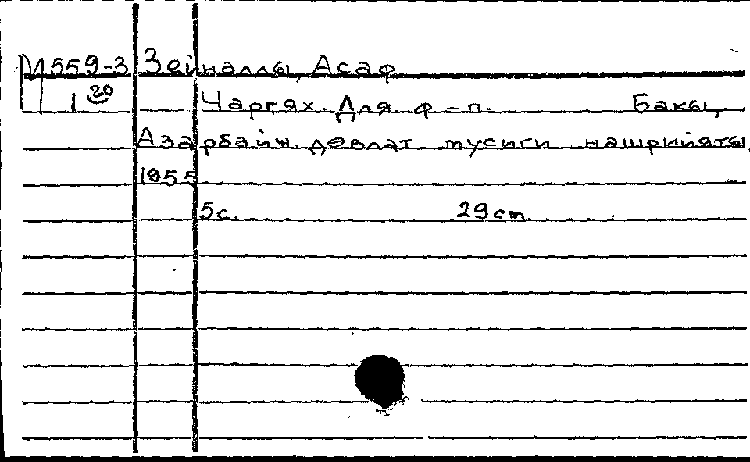 М559-3 Зейналлы, Асаф
1 20 Чаргях. Для ф-п. Бакы,
Азәрбайҹ. дөвләт мусиги нәшрийяты,
1955
5с. 29cm